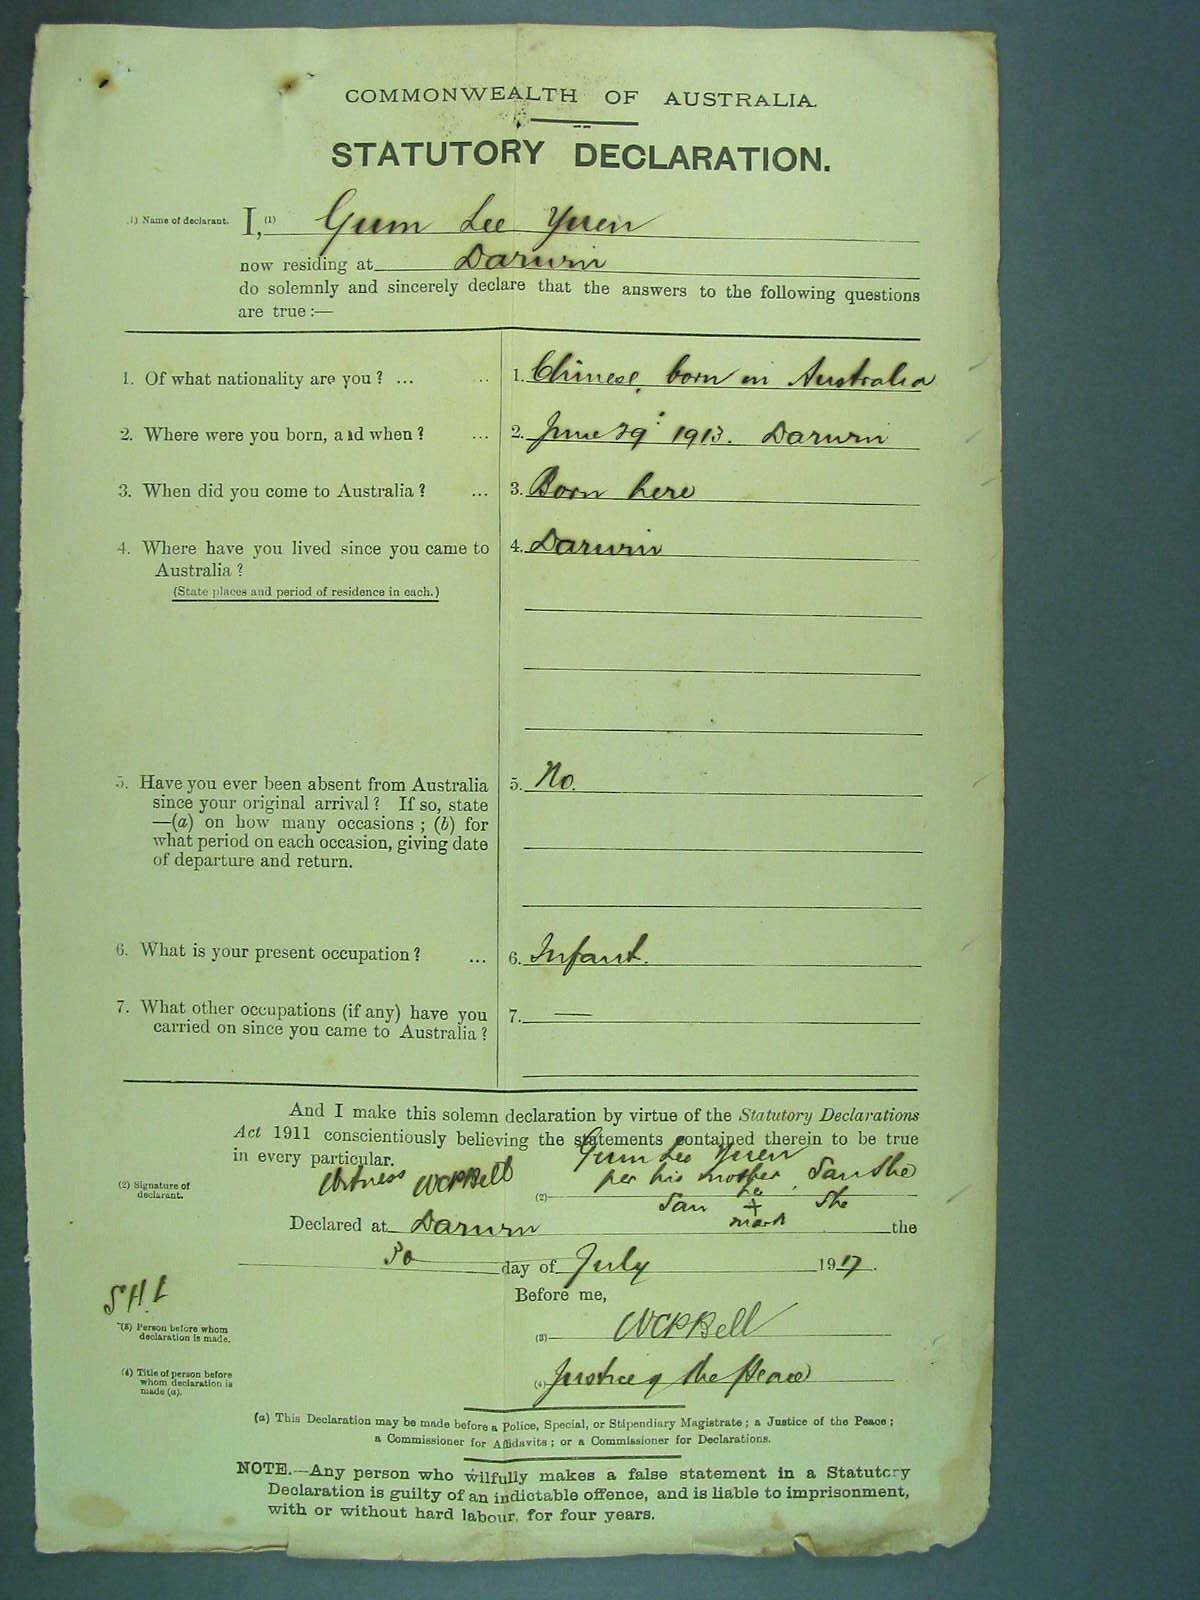 COMMONWEALTH OF AUSTRALIA.
STATUTORY DECLARATION.
(1) Name of declarant. I, (1) Gum Lee Yuen
now residing at Darwin
do solemnly and sincerely declare that the answers to the following questions
are true :—
1. Of what nationality are you ? ... ... 1. Chinese, born in Australia
2. Where were you born, and when ? ... 2. June 29. 1913. Darwin
3. When did you come to Australia ? ... 3. Born here
4. Where have you lived since you came to 4. Darwin
Australia ?
(State places and period of residence in each.)
5. Have you ever been absent from Australia 5. No.
since your original arrival ? If so, state
—(a) on how many occasions ; (b) for
what period on each occasion, giving date
of departure and return.
6. What is your present occupation ? ... 6. Infant.
7. What other occupations (if any) have you 7. —
carried on since you came to Australia ?
And I make this solemn declaration by virtue of the Statutory Declarations
Act 1911 conscientiously believing the statements contained therein to be true
in every particular. Gum Lee Yuen
Witness WCPBell per his mother, San She
(2) Signature of
declarant. (2) her
San + She
mark
Declared at Darwin the
30 day of July 1917.
Before me,
S.H.L
(3) Person before whom
declaration is made. (3) WCPBell
(4) Title of person before
whom declaration is
made (a). (4) Justice of the Peace
(a) This Declaration may be made before a Police, Special, or Stipendiary Magistrate ; a Justice of the Peace ;
a Commissioner for Affidavits ; or a Commissioner for Declarations.
NOTE.—Any person who wilfully makes a false statement in a Statutory
Declaration is guilty of an indictable offence, and is liable to imprisonment,
with or without hard labour, for four years.